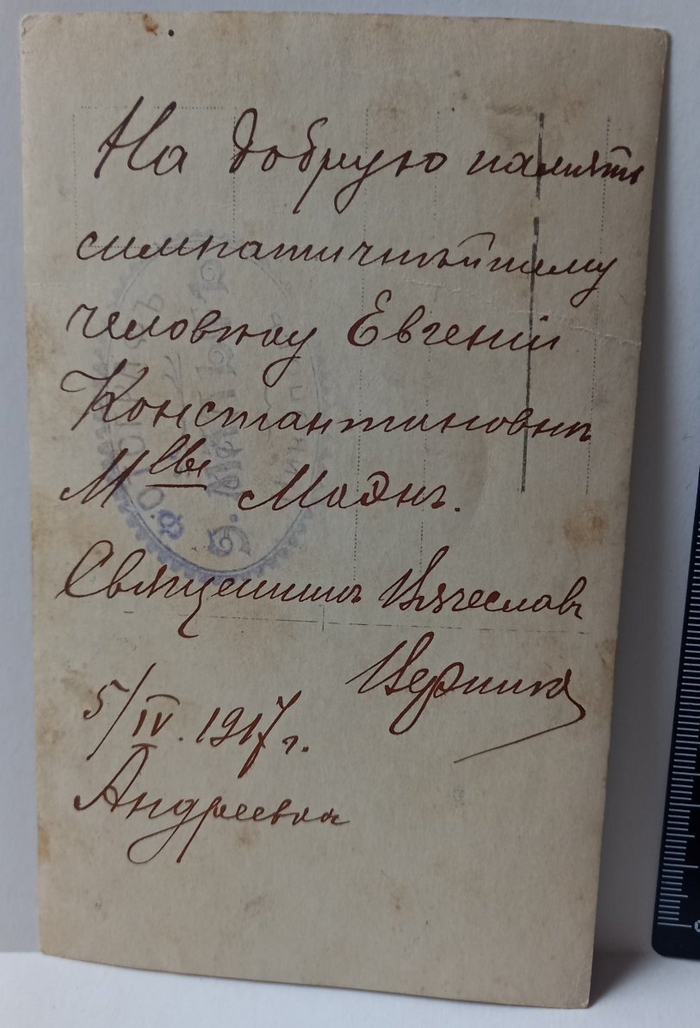 На добрую память
симпатичнѣйшему
человѣку Евгеніи
Константиновнѣ
Mlle Мадэ.
Священникъ Вячеславъ
5/IV. 1917 г.
Андреевка